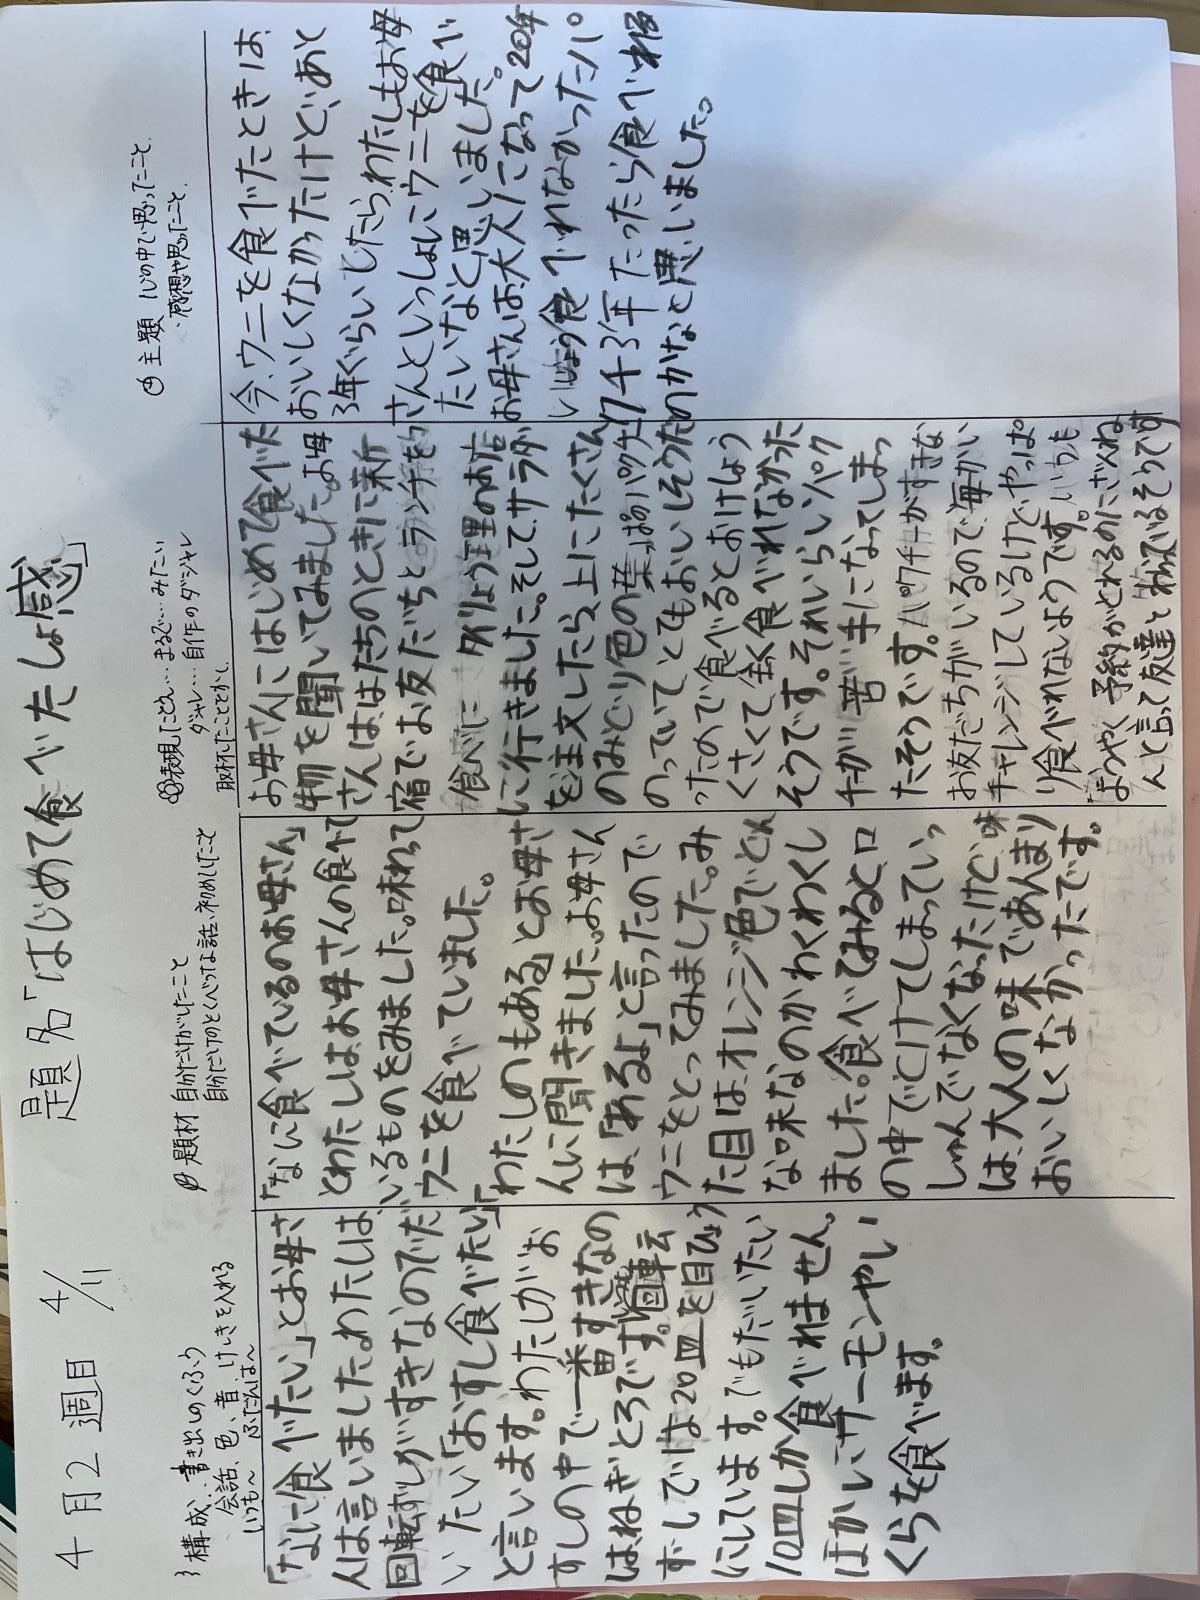 4月2週目 4/11 題名「はじめて食べたしょ感」
3 構成…書き出しのくふう
会話、色、音、けしきを入れる
いつも〜 ふだんは〜
「なに食べたい」とお母さ
んは言いましたよわたしは
回転ずしがすきなのでだ
いたい「おすし食べたい」
と言います。わたしがお
すしの中で一番すきなの
はねぎとろです。回転
ずしでは20皿を目ひょう
にしています。でもだいたい
10皿しか食べれません。
ほかにサーモンやい
くらを食べます。
題材 自分だけがしたこと
自分だけのとくべつな話、初めてしたこと
「なに食べているのお母さん」
とわたしはお母さんの食べて
いるものをみました。味わって
ウニを食べていました。
「わたしのもある」とお母さ
んに聞きました。お母さん
は「あるよ」と言ったので
ウニをとってみました。み
た目はオレンジ色でどん
な味なのかわくわくし
ました。食べてみると口
の中でとけてしまっていっ
しゅんでなくなったけど、味
は、大人の味であんまり
おいしくなかったです。
表現 たとえ…まるで…みたい
ダジャレ…自作のダジャレ
取材したこととかし
お母さんにはじめて食べた
物を聞いてみました。お母
さんははたちのときに新
宿でお友だちとランチを
食べに タイりょう理のお店
に行きました。そしてサラダ
を注文したら上にたくさん
のみどり色の葉っぱのパクチー
のっていてとてもおいしそうだ
ったので食べるとおけしょう
くさくて全く食べれなかった
そうです。それいらいパク
チーが苦手になってしまっ
たそうです。パクチーがすきな
お友だちがいるので毎かい
チャレンジしているけど、やっぱ
り食べれないようです。いつも
「ようやく予約がとれるのにざんねん」
んと言って友達とわらっているそうです
主題 心の中で思ったこと
・感想や思ったこと
今、ウニを食べたときは、
おいしくなかったけど、あと
3年ぐらいしたらわたしもお母
さんといっしょにウニを食べ
たいなと思いました。
お母さんは、大人になって20年
いじょう食べれなかったパ
クチー3年たったら食べれる
のかなと思いました。